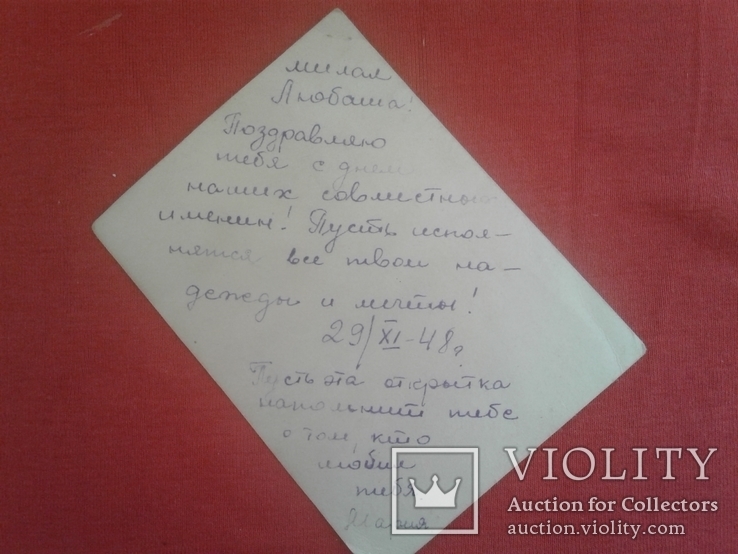 милая
Любаша!
Поздравляю
тебя с днем
наших совместных
именин! Пусть испол-
нятся все твои на-
дежды и мечты!
29/XI-48г
Пусть эта открытка
напомнит тебе
о том, кто
любил
тебя
Мария
VIOLITY
Auction for Collectors
auction.violity.com